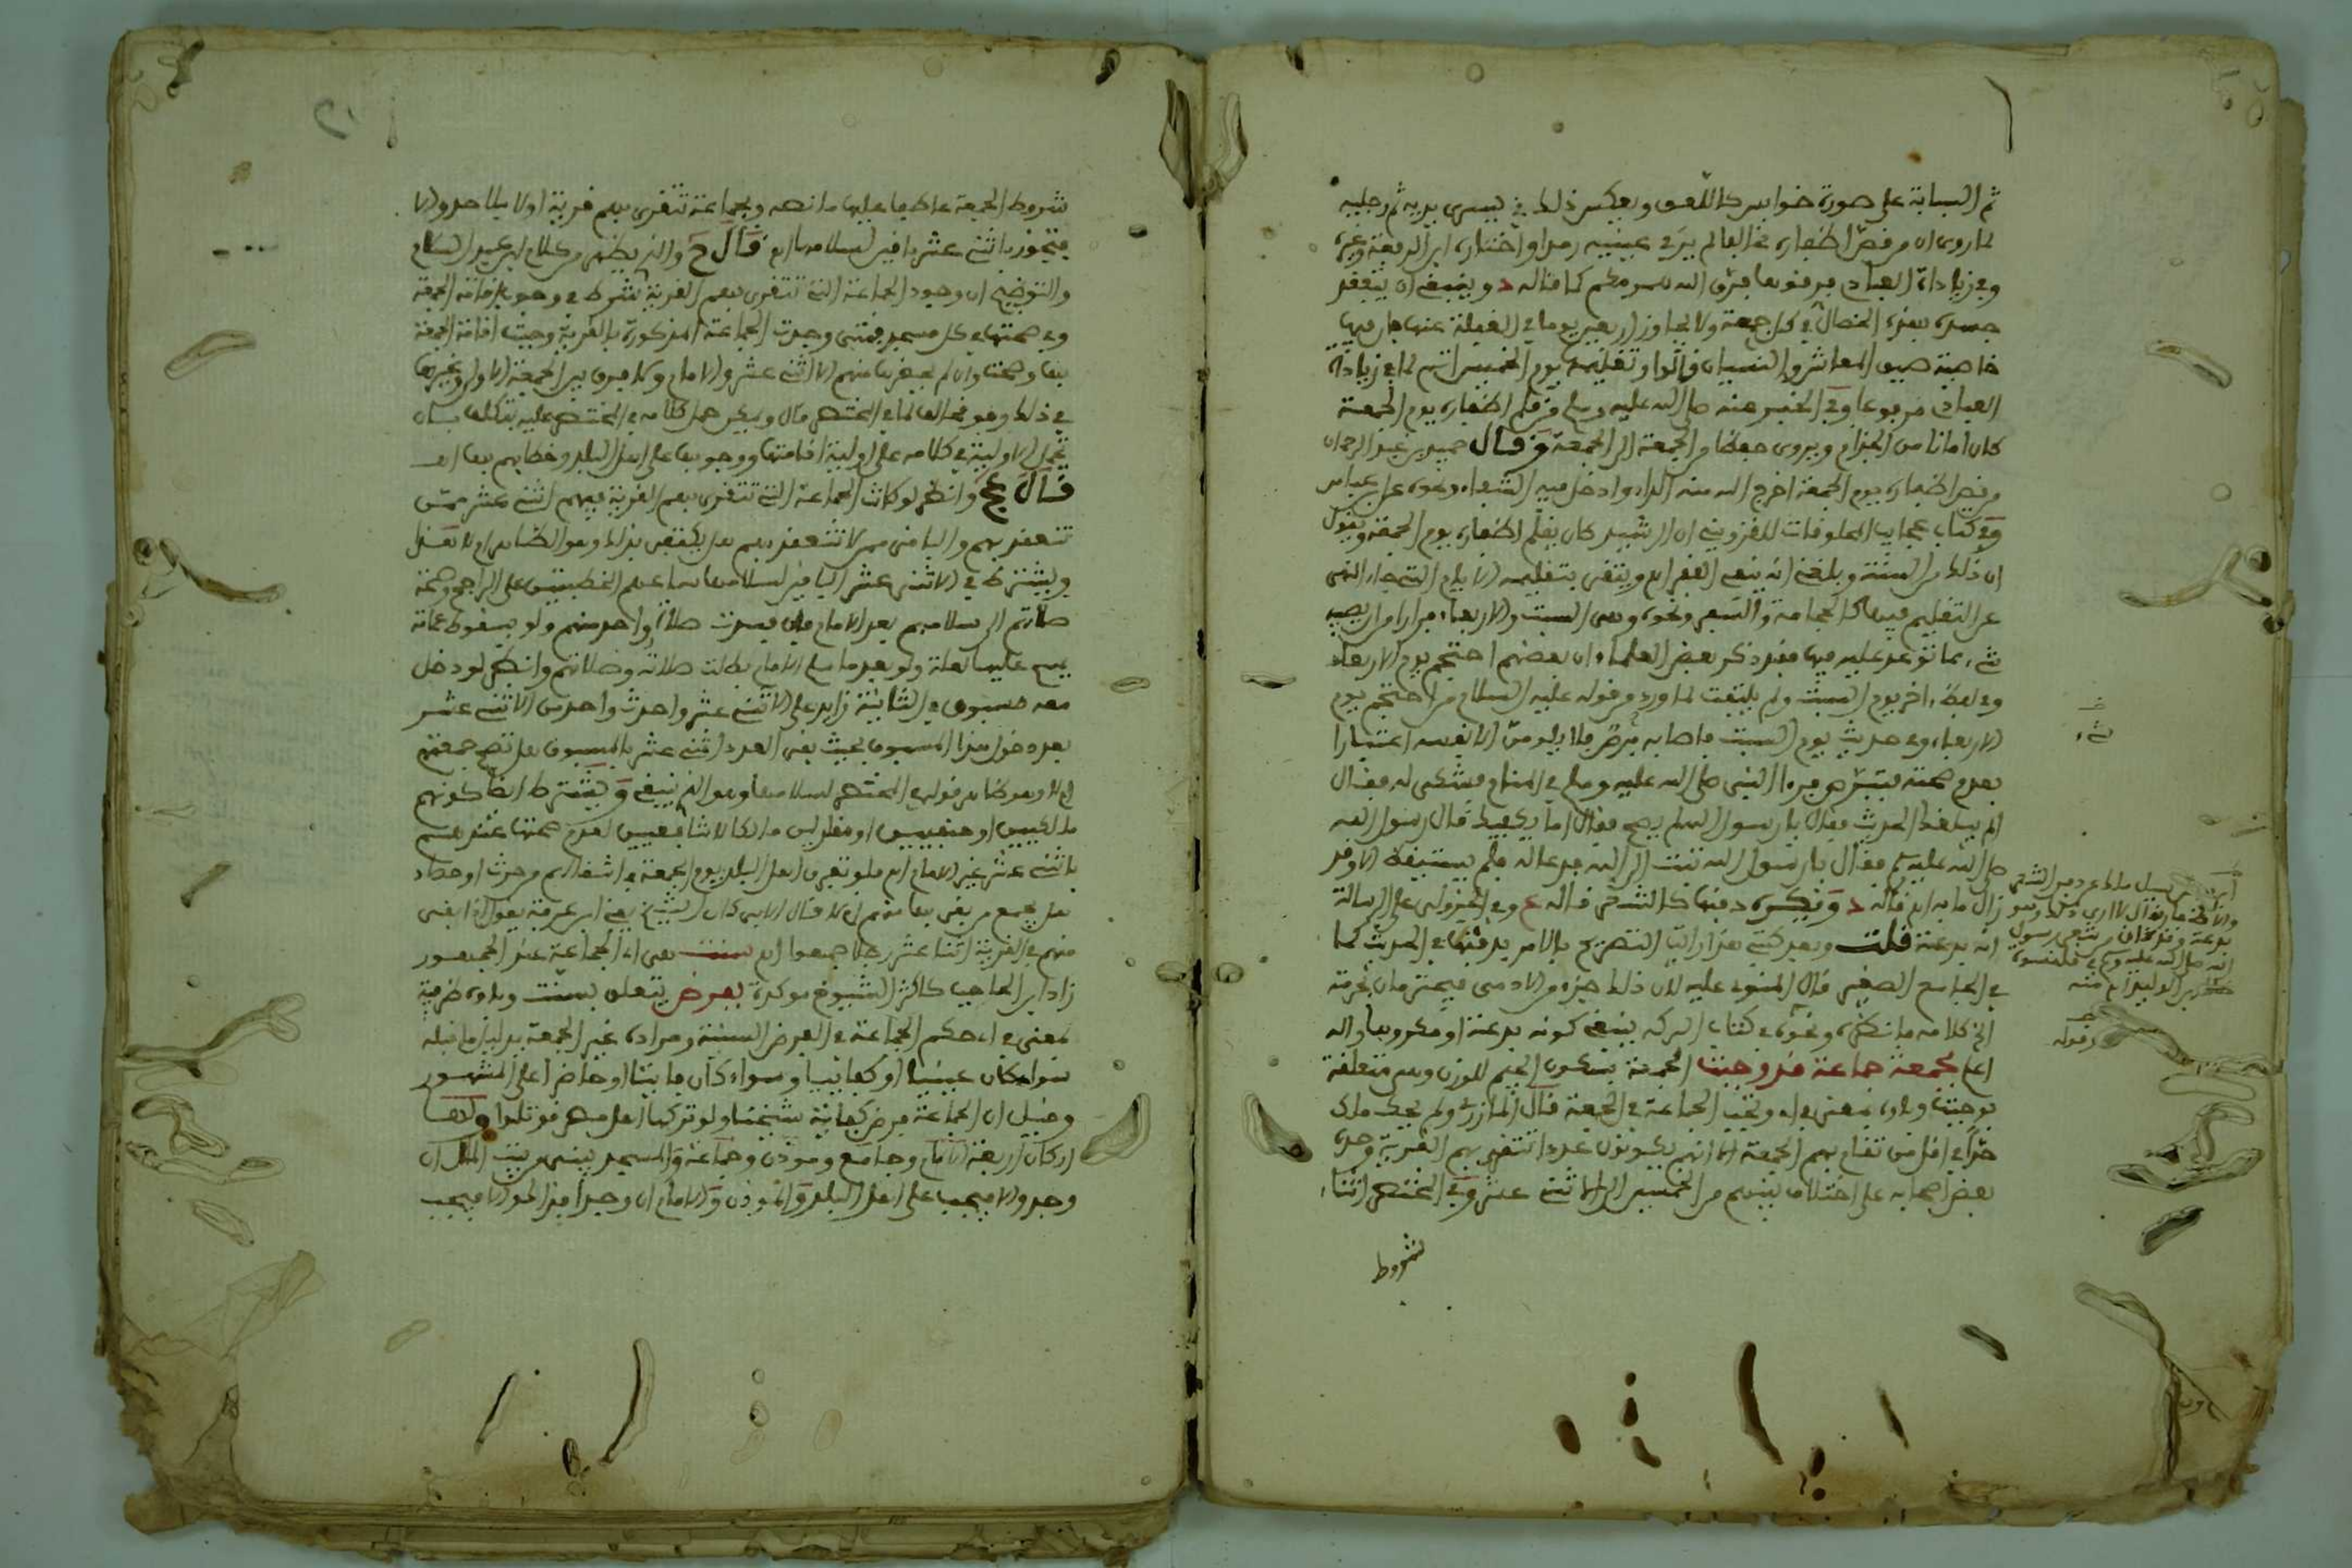 ثم السبابة على صورة خوابس كاللعق وبعكس ذلك في يسرى يديه ثم رجليه
لما روى ان من قص اظفاره مخالفا لم ير في عينيه رمدا واختاره ابن الرفعة وغيره
وفي زيادات العبادي من فرقها فرق الله همومكم كما قاله د وينبغي ان يتفقد
جسده بهذه الخصال في كل جمعة ولا يجاوز اربعين يوما في الغفلة عنها فان فيها
خاصية ضيق المعاش والنسيان قالوا وتقليمها يوم الخميس اتم لما في زيادات
العبادي مرفوعا وفي الخبر عنه صلى الله عليه وسلم من قلم اظفاره يوم الجمعة
كان امانا من الجذام ويروى حفظا من الجمعة الى الجمعة وقال حميد بن عبد الرحمان
من قص اظفاره يوم الجمعة اخرج الله منه الداء وادخل فيه الشفاء ونحوه عن ابن عباس
وفي كتاب عجايب المخلوقات للقزويني ان الرشيد كان يقلم اظفاره يوم الجمعة ويقول
ان ذلك من السنة وبلغني انه ينفي الفقر اه ويتقى بتقليمه الايام التي جاء النهي
عن التقليم فيها كالحجامة والسفر ونحوه وهي السبت والاربعاء فرارا من ان يصيبه
شيء مما توعد عليه فيها فقد ذكر بعض العلماء ان بعضهم احتجم يوم الاربعاء
وفي لفظ اخر يوم السبت ولم يلتفت لما ورد من قوله عليه السلام من احتجم يوم
الاربعاء وفي حديث يوم السبت فاصابه مرض فلا يلومن الا نفسه اعتمادا
بعدم صحته فتبرص فرءا النبي صلى الله عليه وسلم في المنام فشكى له فقال
الم يبلغك الحديث فقال يا رسول الله لم يصح فقال اما يكفيك قال رسول الله
صلى الله عليه وسلم فقال يا رسول الله تبت الى الله فدعا له فلم يستيقظ الا وقد
زال ما به اه قاله د ويكره دفنها كالشعر قاله ع وفي الجزولي على الرسالة
انه بدعة قلت وبعد كتبي هذا رايت التصريح بالامر بدفنها في الحديث كما
في الجامع الصغير قال المنوي عليه لان ذلك جزء من الادمي فيحترم لان بحرمته
الخ كلامه فانظره ونحوه في كتاب البركة ينفي كونه بدعة او مكروها والله
اعلم لجمعة جماعة قد وجبت الجمعة بسكون الجيم للوزن وهي متعلقة
بوجبت ولاده بمعنى في اي وتجب الجماعة في الجمعة قال المازري ولم يحد مالك
حدا في اقل من تقام بهم الجمعة الا انهم يكونون عددا تتقرى بهم القرية وحده
بعض اصحابه على اختلاف بينهم من الخمسين الى الاثني عشر وفي المختصر اثناء
شروط
بدعة
وقوله
شروط الجمعة عاطفا عليها ما نصه وبجماعة تتقرى بهم قرية اولا بلا حد والا
فتجوز باثني عشر باقين لسلامها اه قال ح والذي يظهر من كلام ابن عبد السلام
والتوضيح ان وجود الجماعة التي تتقرى بهم القرية شرط في وجوب اقامة الجمعة
وفي صحتها في كل مسجد فمتى وجدت الجماعة المذكورة بالقرية وجبت اقامة الجمعة
بها وصحت وان لم يحضرها منهم الا اثني عشر والامام ولا فرق بين الجمعة الاولى وغيرها
في ذلك وهو مخالف لما في المختصر قال ويمكن حمل كلامه في المختصر عليه بتكلف بان
تحمل الاولية في كلامه على اولية اقامتها ووجوبها على اهل البلد وخطابهم بها اه
قال عج وانظر لو كانت الجماعة التي تتقرى بهم القرية فيهم اثني عشر ممن
تنعقد بهم والباقي ممن لا تنعقد بهم هل يكتفى بذلك وهو الظاهر ام لا نقل
ويشترط في الاثني عشر الباقين لسلامها سماعهم الخطبتين على الراجح وصحة
صلاتهم الى سلامهم بعد الامام فان فسدت صلاة واحد منهم ولو بسقوط عمامة
يسجد عليها بعلة ولو بعد ما سلم الامام بطلت صلاته وصلاتهم وانظر لو دخل
معه مسبوق في الثانية زايد على الاثني عشر واحدث واحد من الاثني عشر
بعد دخول هذا المسبوق بحيث بقي العدد اثني عشر بالمسبوق هل تصح جمعتهم
ام لا وهو ظاهر قوله في المختصر لسلامها وهو الذي ينبغي ويشترط ايضا كونهم
مالكيين او حنفيين او مقلدين مالكا لا شافعيين لعدم صحتها عندهم
باثني عشر غير الامام اه فلو تفرق اهل البلد يوم الجمعة في اشغالهم من حرث او حصاد
هل يجمع من بقي بها منهم ام لا قال الابي كان الشيخ يعني ابن عرفة يقول اذا بقي
منهم في القرية اثنا عشر رجلا جمعوا اه سنت هي اي الجماعة عند الجمهور
زاد ابن الحاجب كاكثر الشيوخ موكدة بفرض يتعلق بسنت وباؤه ظرفية
بمعنى في اي حكم الجماعة في الفرض السنية ومراده غير الجمعة بدليل ما قبله
سواء كان عينيا او كفاييا وسواء كان فايتا او حاضرا على المشهور
وقيل ان الجماعة فرض كفاية شيخنا ولو تركها اهل مصر قوتلوا ولها
اركان اربعة امام وجامع وموذن وجماعة والمسجد يبنى من بيت المال ان
وجد والا فيجب على اهل البلد والموذن والامام ان وجدا فذاك والا فيجب